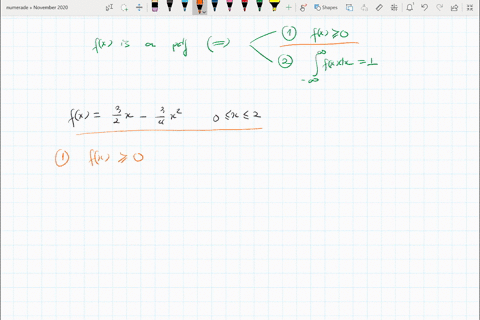 numerade > November 2020
Shapes
① f(x) ≥ 0
f(x) is a pdf (=)
② ∫_{-∞}^{∞} f(x)dx = 1
f(x) = 3/2 x - 3/4 x² 0 ≤ x ≤ 2
① f(x) ≥ 0